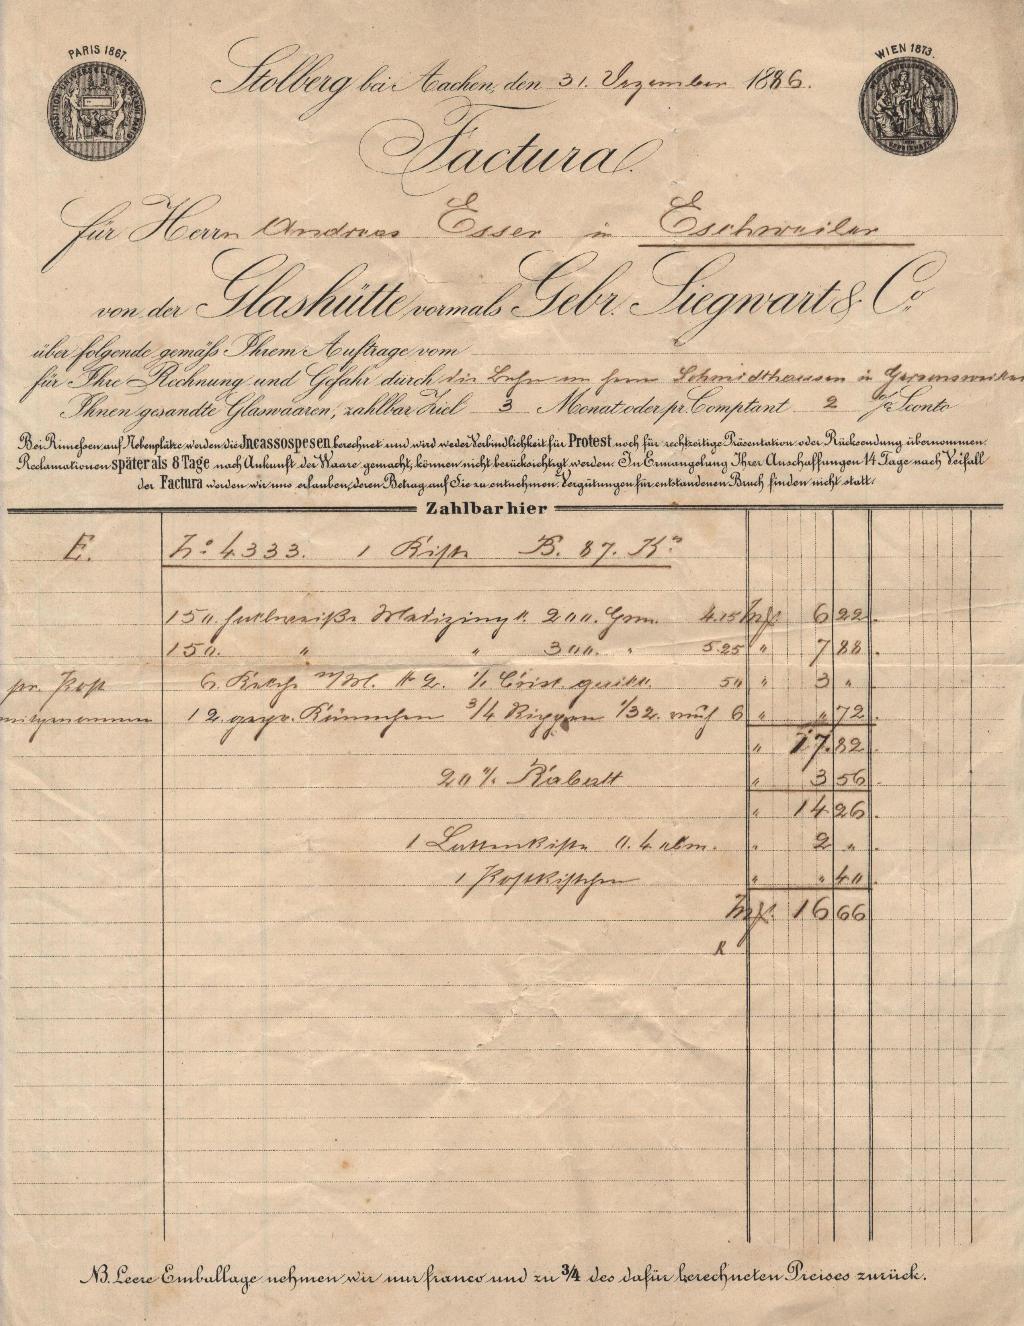 PARIS 1867.
WIEN 1873.
Stolberg bei Aachen, den 31. Dezember 1886.
Factura
für Herrn Andreas Esser in Eschweiler
von der Glashütte vormals Gebr. Siegwart & Co.
über folgende gemäfs Ihrem Auftrage vom
für Ihre Rechnung und Gefahr durch die Bahn an Herrn Schmidthausen in
Ihnen gesandte Glaswaaren, zahlbar Ziel 3 Monat oder pr. Comptant 2 % Sconto
Bei Rimefsen auf Nebenplätze werden die Incassospesen berechnet und wird weder Verbindlichkeit für Protest noch für rechtzeitige Präsentation oder Rücksendung übernommen.
Reclamationen später als 8 Tage nach Ankunft der Waare gemacht, können nicht berücksichtigt werden. In Ermangelung Ihrer Anschaffungen 14 Tage nach Verfall
der Factura werden wir uns erlauben, deren Betrag auf Sie zu entnehmen. Vergütungen für entstandenen Bruch finden nicht statt.
Zahlbar hier
E. No 4333. 1 Kiste B. 87. Ko
150. halbweiße Medizing. 200. Grm. 4.15 Mk 6 22
150. " " 300. " 5.25 " 7 88
pr. Post 6. 50 " 3 "
mitgenommen 12. gepr. Kännchen 3/4 Rippen 1/32 6 " " 72
" 17.82
20 % Rabatt " 3 56
" 14 26
1 Lattenkiste 2 "
1 Postkistchen " " 40
Mk. 16 66
R
NB. Leere Emballage nehmen wir nur franco und zu 3/4 des dafür berechneten Preises zurück.